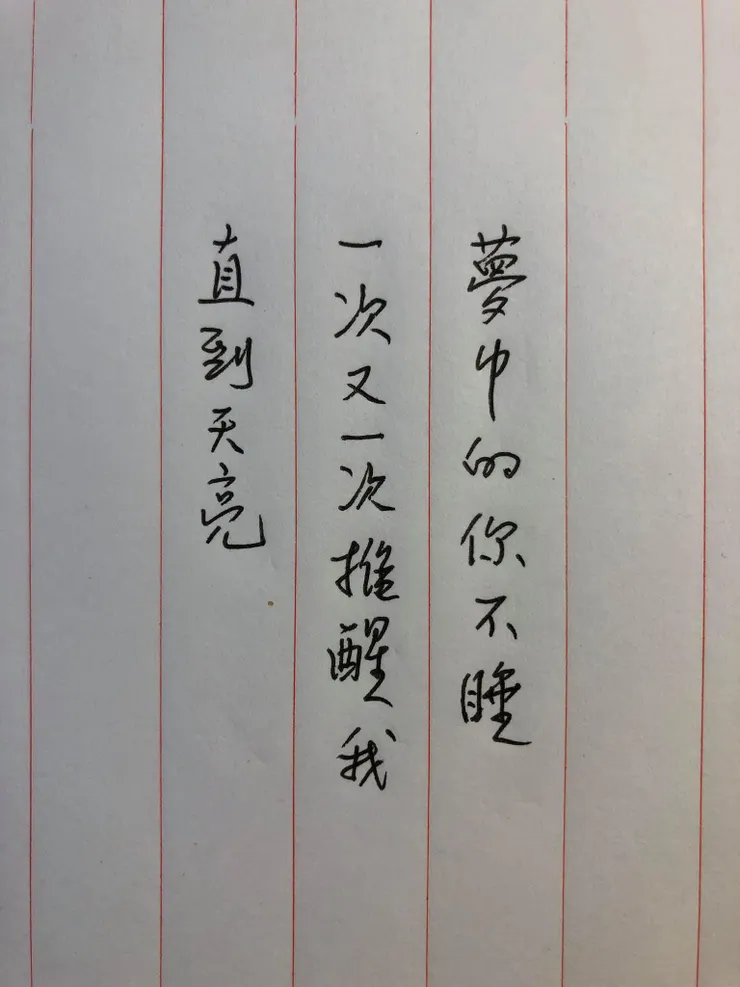 夢中的你不睡
一次又一次推醒我
直到天亮